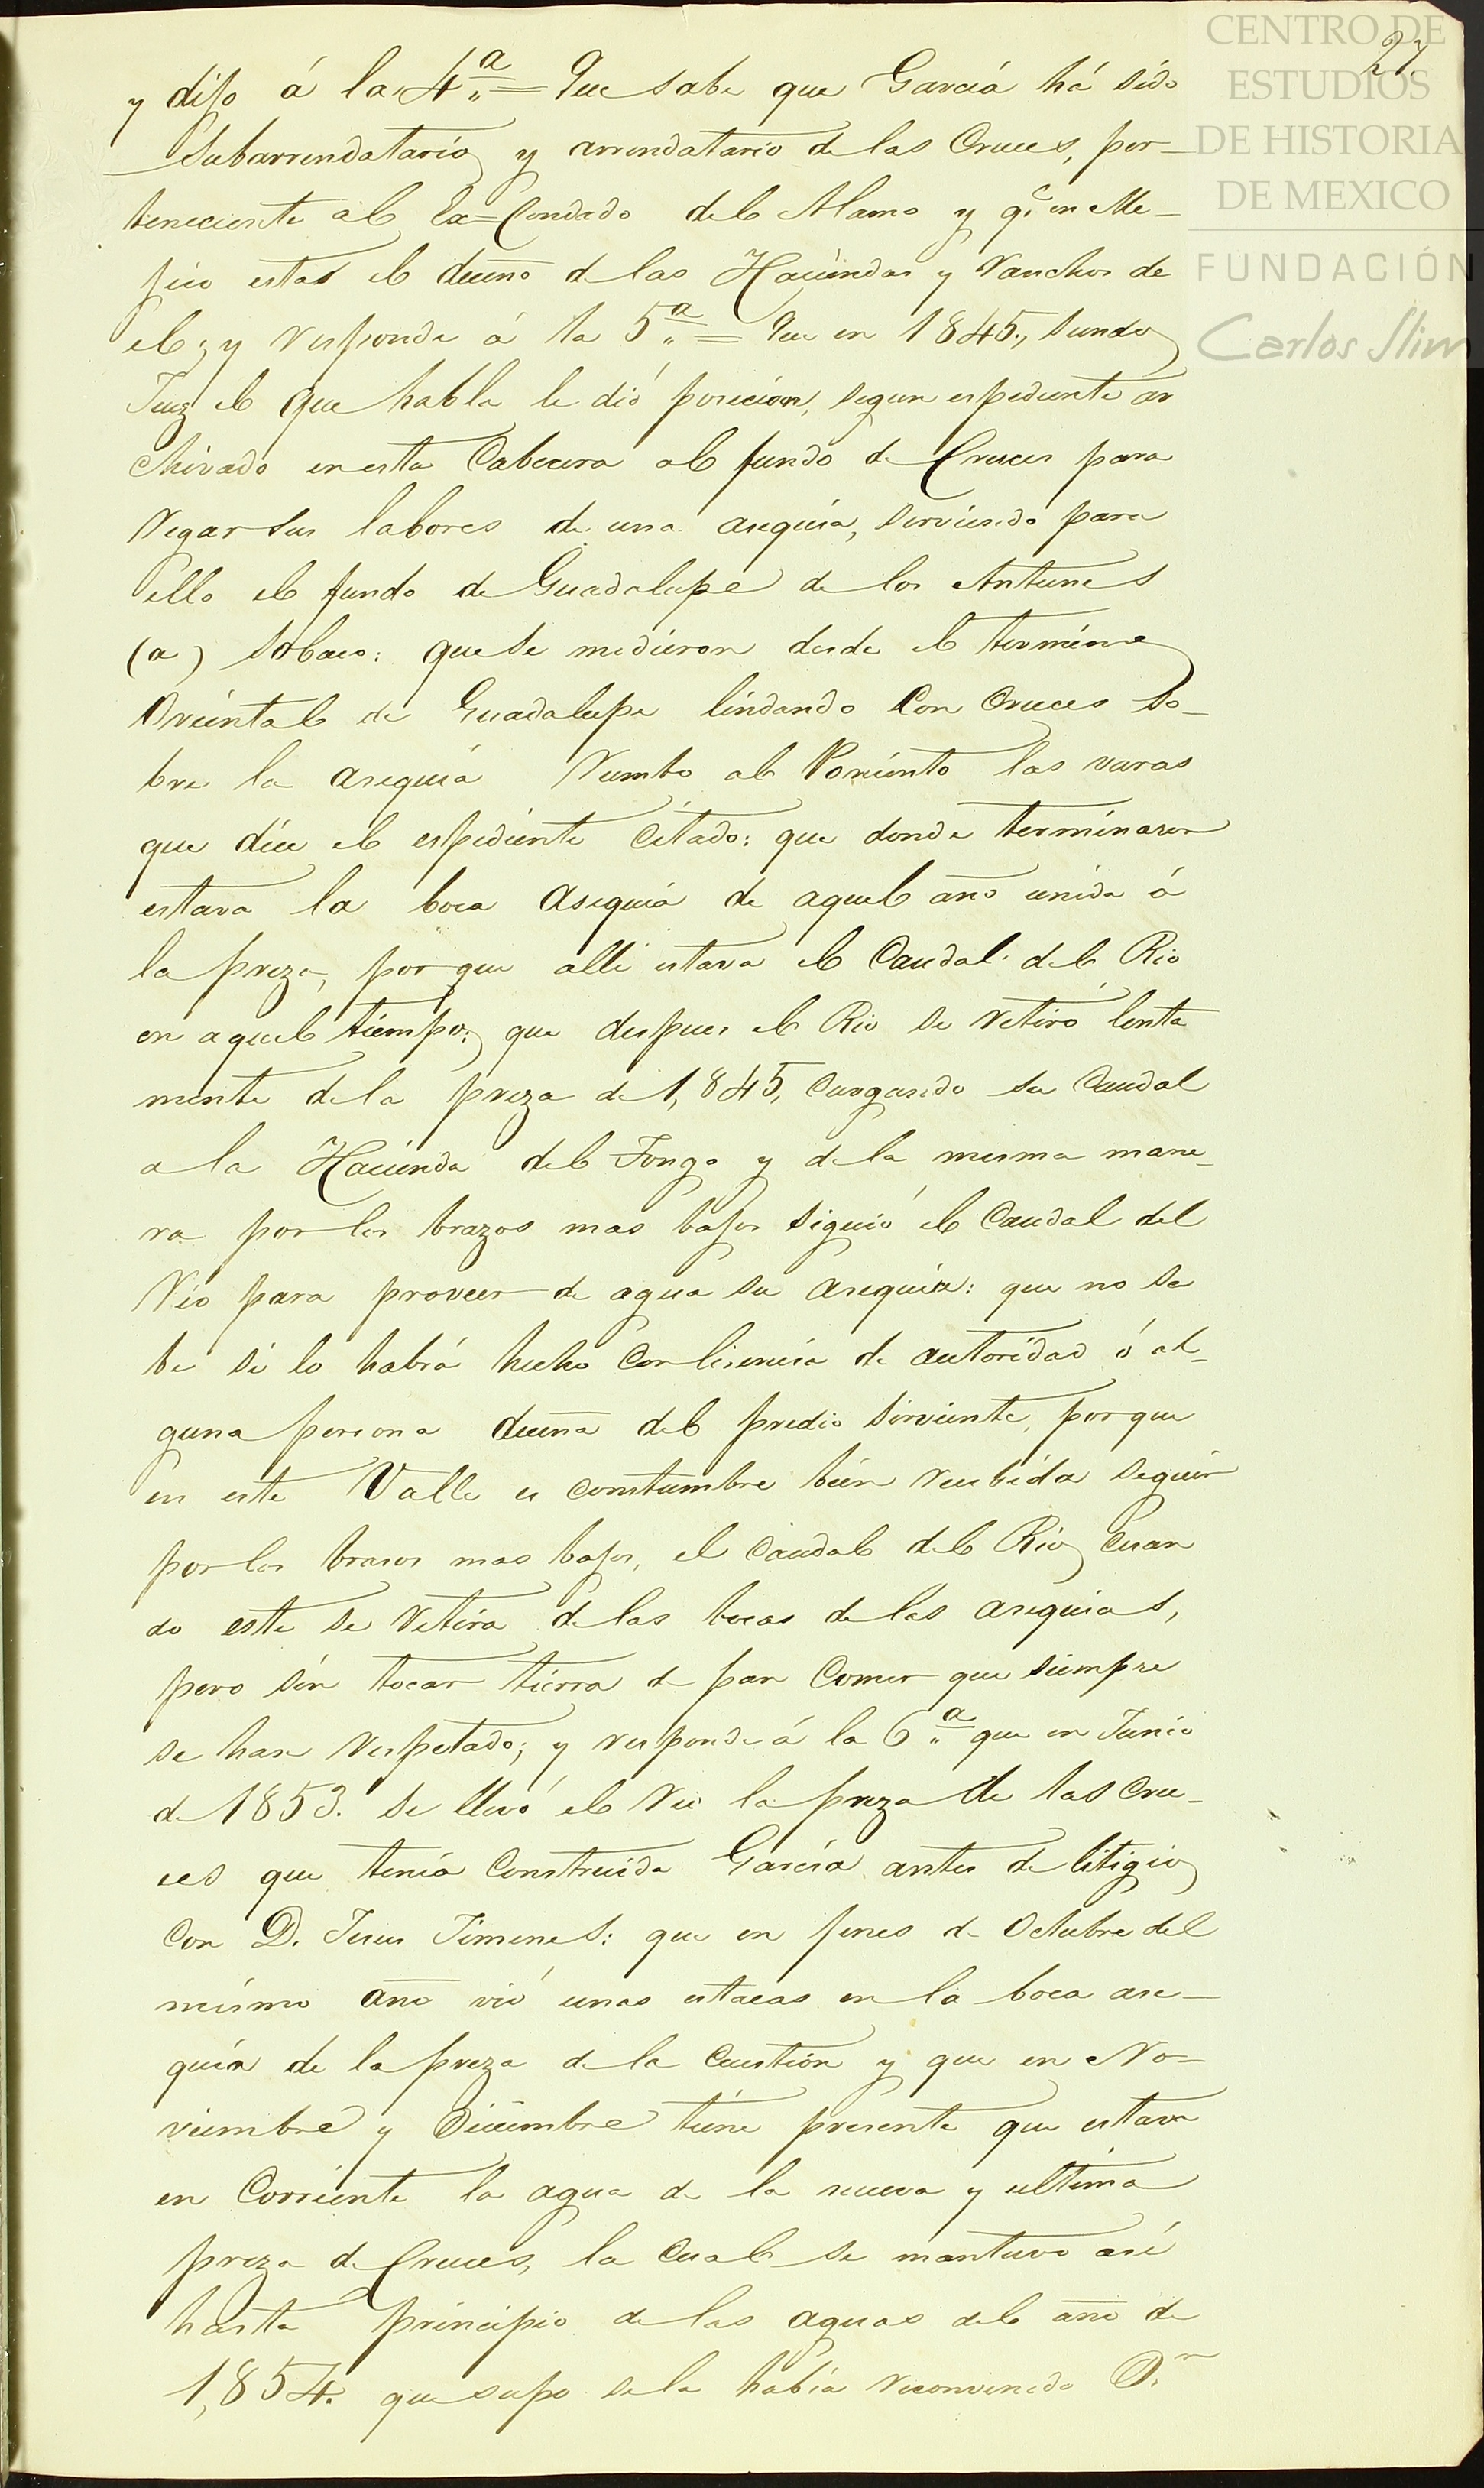 CENTRO DE
ESTUDIOS
DE HISTORIA
DE MEXICO
FUNDACIÓN
Carlos Slim
27
y dijo á la 4.ª = Que sabe que Garcia há sido
Subarrendatario y arrendatario de las Cruces, per-
teneciente al Ex=Condado del Alamo y q.e en Me-
jico estas el dueño de las Haciendas y Ranchos de
el; y responde á la 5.ª = Que en 1845., siendo
Juez el que habla le dió posecion, segun espediente ar
chivado en esta Cabecera al fundo de Cruces para
regar sus labores de una asequia, serviendo para
ello el fundo de Guadalupe de los Antunes
(a) Sobaco: que se midieron desde el termino
Oriental de Guadalupe lindando con Cruces so-
bre la asequia Rumbo al Poniente las varas
que dice el espediente citado: que donde terminaron
estava la boca asequia de aquel año unida á
la preza, por que alli estava el Caudal del Rio
en aquel tiempo; que despues el Rio se retiró lenta
mente de la preza de 1,845, cargando su Caudal
a la Hacienda del Torgo y de la mesma mane-
ra por los brazos mas bajos siguió el Caudal del
Rio para proveer de agua su asequia: que no sa
be si lo habrá hecho con lisencia de autoridad ó al-
guna persona dueña del predio sirviente, porque
en este Valle es constumbre bien recibida seguir
por los brasos mas bajos, el Caudal del Rio, cuan
do este se retira de las bocas de las asequias,
pero sin tocar tierra de pan comer que siempre
se han respetado; y responde á la 6.ª que en Junio
de 1853. se llevó el Rio la preza de las Cru-
ces que tenia construida Garcia antes de litigio
con D. Jesus Jimenes: que en fines de Octubre del
mismo año vió unas estacas en la boca ase-
quia de la preza de la cuestion y que en No-
viembre y Diciembre tiene presente que estava
en Corriente la agua de la nueva y ultima
preza de Cruces, la cual se mantuvo asi
hasta principio de las aguas del año de
1,854. que supo se la habia reconvenido D.n